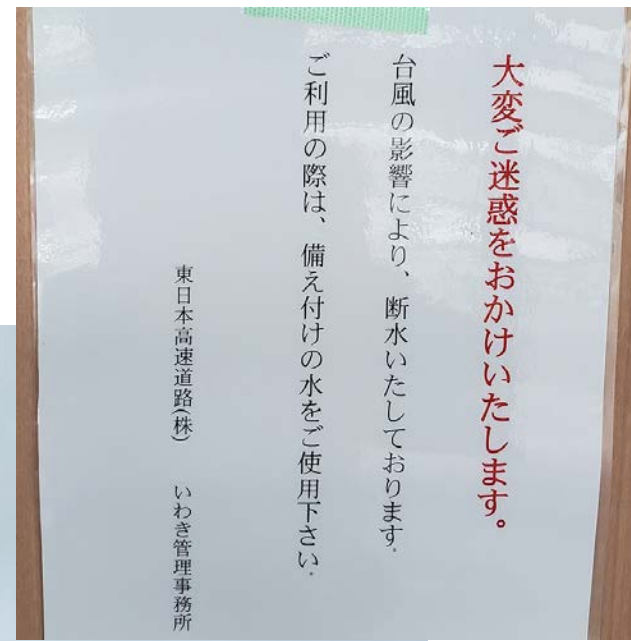 大変ご迷惑をおかけいたします。
台風の影響により、断水いたしております。
ご利用の際は、備え付けの水をご使用下さい。
東日本高速道路(株) いわき管理事務所